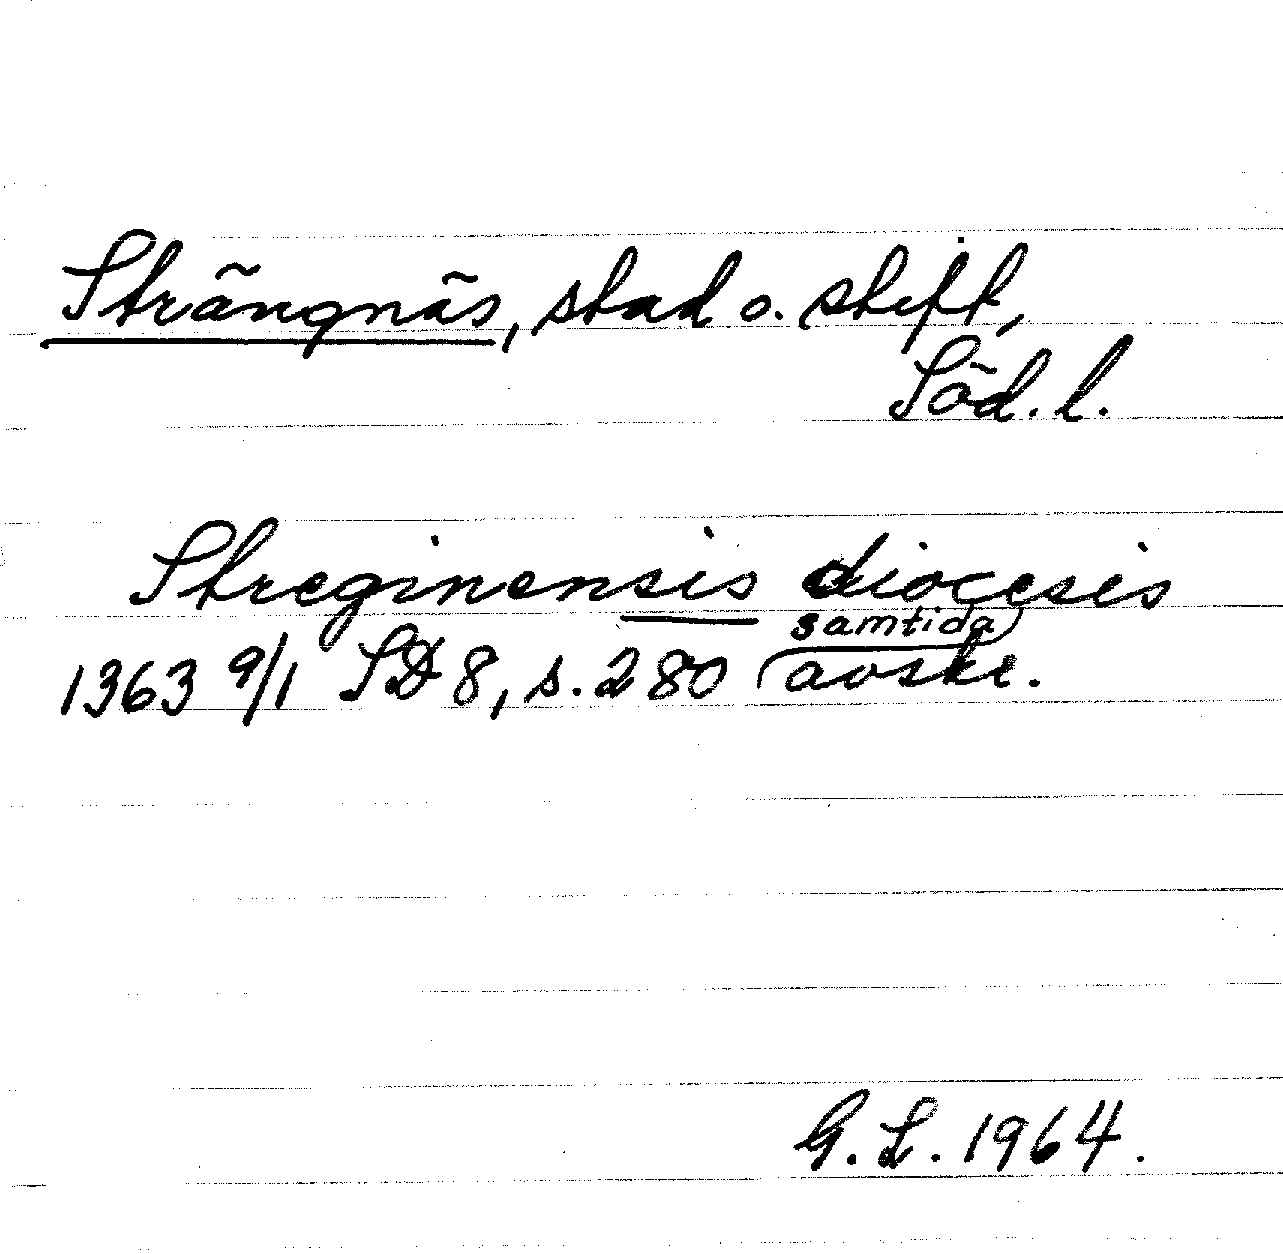 Strängnäs, stad o. stift,
Söd. l.
Streginensis diocesis
samtida
1363 9/1 SD 8, s. 280 avskr.
G. L. 1964.